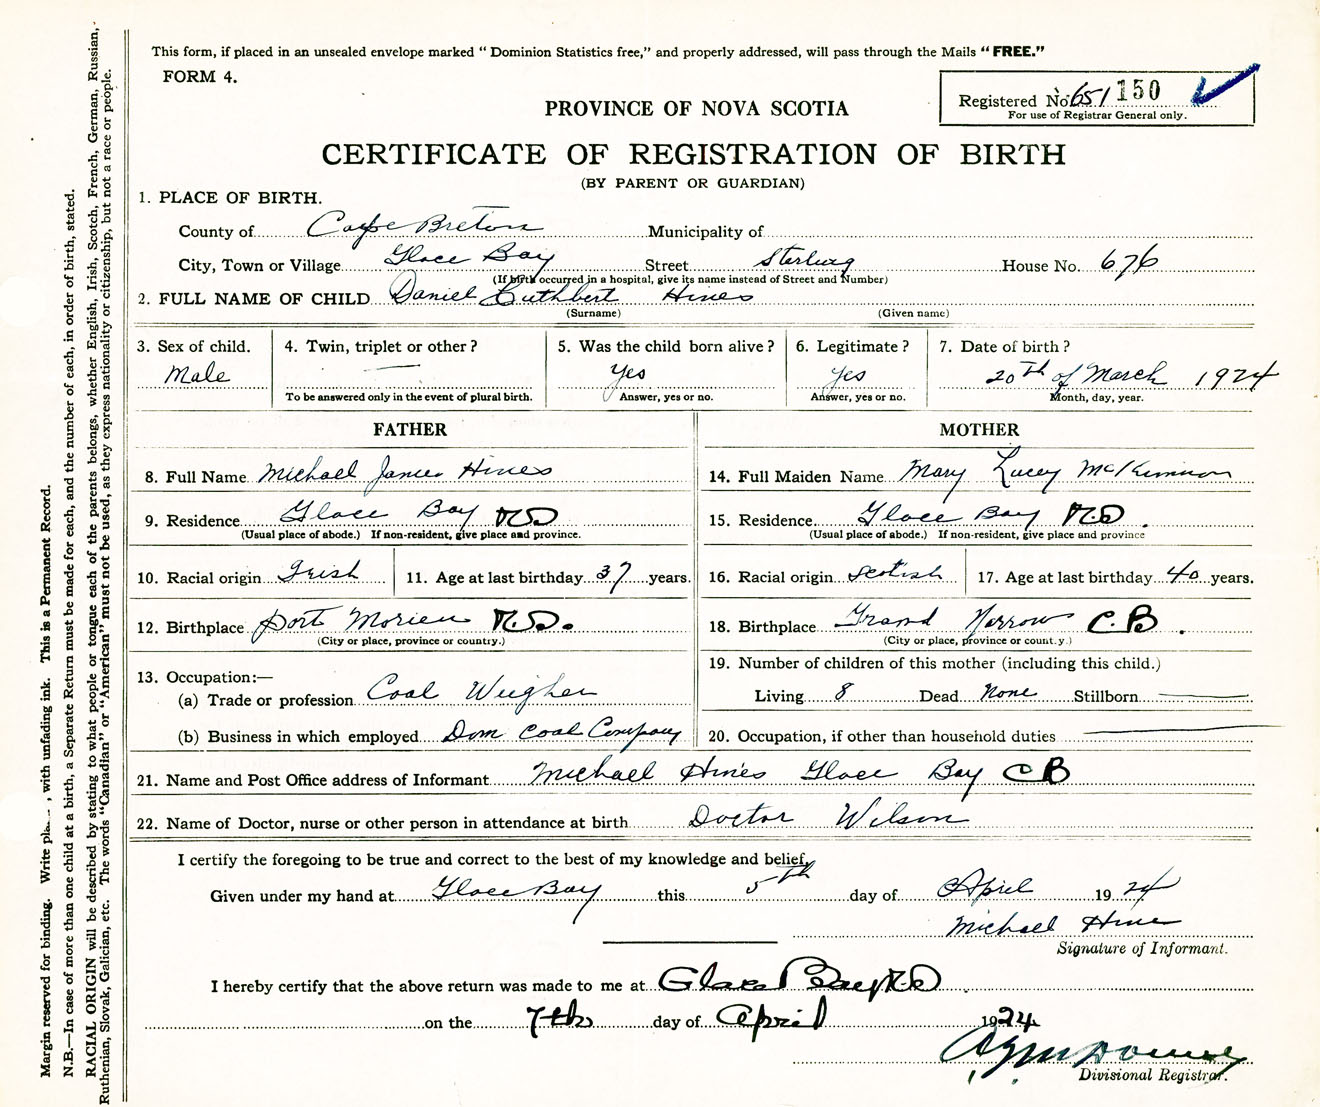 This form, if placed in an unsealed envelope marked “ Dominion Statistics free,” and properly addressed, will pass through the Mails “ FREE.”
FORM 4.
Registered No. 651 150
For use of Registrar General only.
PROVINCE OF NOVA SCOTIA
CERTIFICATE OF REGISTRATION OF BIRTH
(BY PARENT OR GUARDIAN)
1. PLACE OF BIRTH.
County of Cape Breton Municipality of
City, Town or Village Glace Bay Street Sterling House No. 676
(If birth occurred in a hospital, give its name instead of Street and Number)
2. FULL NAME OF CHILD Daniel Cuthbert Hines
(Surname) (Given name)
3. Sex of child. 4. Twin, triplet or other ? 5. Was the child born alive ? 6. Legitimate ? 7. Date of birth ?
Male — Yes Yes 20th of March 1924
To be answered only in the event of plural birth. Answer, yes or no. Answer, yes or no. Month, day, year.
FATHER MOTHER
8. Full Name Michael James Hines 14. Full Maiden Name Mary Lucey McKinnon
9. Residence Glace Bay 15. Residence Glace Bay
(Usual place of abode.) If non-resident, give place and province. (Usual place of abode.) If non-resident, give place and province
10. Racial origin Irish 11. Age at last birthday 37 years. 16. Racial origin Scotish 17. Age at last birthday 40 years.
12. Birthplace Port Morien 18. Birthplace Grand Narrow C.B.
(City or place, province or country.) (City or place, province or count.y.)
13. Occupation:— 19. Number of children of this mother (including this child.)
(a) Trade or profession Coal Weigher Living 8 Dead None Stillborn —
(b) Business in which employed Dom Coal Company 20. Occupation, if other than household duties —
21. Name and Post Office address of Informant Michael Hines Glace Bay CB
22. Name of Doctor, nurse or other person in attendance at birth Doctor Wilson
I certify the foregoing to be true and correct to the best of my knowledge and belief,
Given under my hand at Glace Bay this 5th day of April 1924
Michael Hines
Signature of Informant.
I hereby certify that the above return was made to me at Glace Bay
on the 7th day of April 1924
Divisional Registrar.
Margin reserved for binding. Write , with unfading ink. This is a Permanent Record.
N.B.—In case of more than one child at a birth, a Separate Return must be made for each, and the number of each, in order of birth, stated.
RACIAL ORIGIN will be described by stating to what people or tongue each of the parents belongs, whether English, Irish, Scotch, French, German, Russian,
Ruthenian, Slovak, Galician, etc. The words “Canadian” or “American” must not be used, as they express nationality or citizenship, but not a race or people.